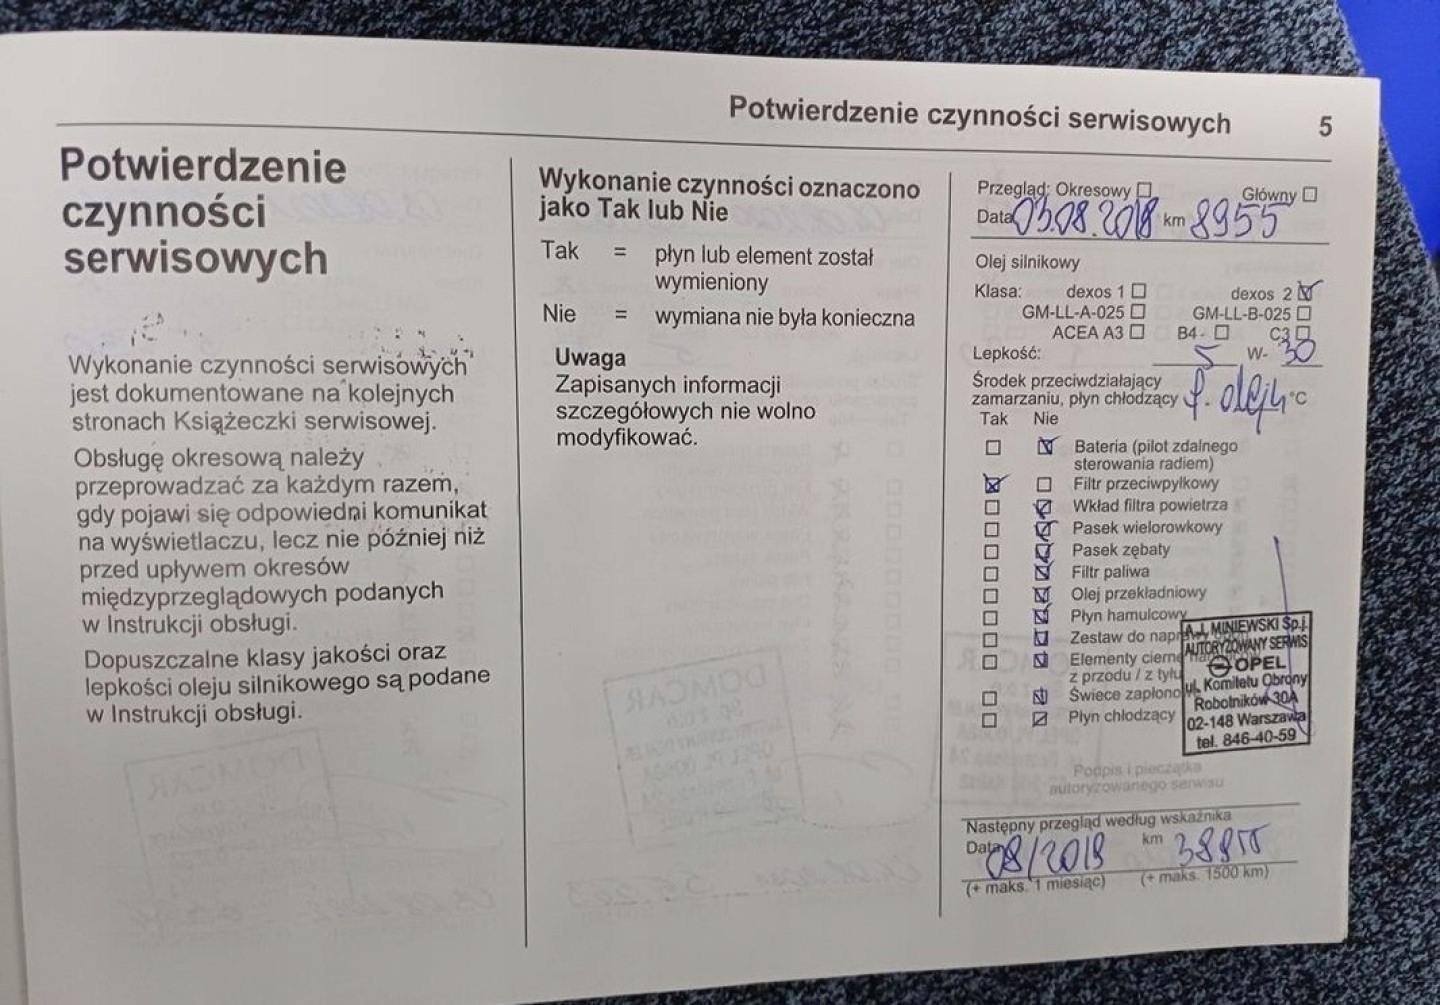 Potwierdzenie czynności serwisowych 5
Potwierdzenie
czynności
serwisowych
Wykonanie czynności serwisowych
jest dokumentowane na kolejnych
stronach Książeczki serwisowej.
Obsługę okresową należy
przeprowadzać za każdym razem,
gdy pojawi się odpowiedni komunikat
na wyświetlaczu, lecz nie później niż
przed upływem okresów
międzyprzeglądowych podanych
w Instrukcji obsługi.
Dopuszczalne klasy jakości oraz
lepkości oleju silnikowego są podane
w Instrukcji obsługi.
Wykonanie czynności oznaczono
jako Tak lub Nie
Tak = płyn lub element został
wymieniony
Nie = wymiana nie była konieczna
Uwaga
Zapisanych informacji
szczegółowych nie wolno
modyfikować.
Przegląd: Okresowy Główny
Data 03.08.2018 km 8955
Olej silnikowy
Klasa: dexos 1 dexos 2
GM-LL-A-025 GM-LL-B-025
ACEA A3 B4 - C3
Lepkość: 5 W- 30
Środek przeciwdziałający
zamarzaniu, płyn chłodzący f. oleju °C
Tak Nie
Bateria (pilot zdalnego
sterowania radiem)
Filtr przeciwpyłkowy
Wkład filtra powietrza
Pasek wielorowkowy
Pasek zębaty
Filtr paliwa
Olej przekładniowy
Płyn hamulcowy
Zestaw do
Elementy cierne
z przodu / z tyłu
Świece zapłono
Płyn chłodzący
A.J. MINIEWSKI Sp.j.
AUTORYZOWANY SERWIS
OPEL
ul. Komitetu Obrony
Robotników 30A
02-148 Warszawa
tel. 846-40-59
Podpis i pieczątka
autoryzowanego serwisu
Następny przegląd według wskaźnika
Data 08/2019 km 38955
(+ maks. 1 miesiąc) (+ maks. 1500 km)